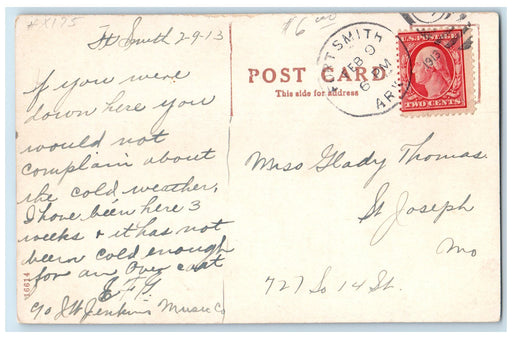 #X175
Ft Smith 2-9-13
$6.00
If you were
down here you
would not
complain about
the cold weather,
I have been here 3
weeks & it has not
been cold enough
for an Over coat
E.F.G.
c/o JW Jenkins Music Co
16614
POST CARD
This side for address
FORT SMITH
FEB 9
6 PM
ARK.
1913
U.S. POSTAGE
TWO CENTS
Miss Glady Thomas.
St Joseph
Mo
727 So 14 St.